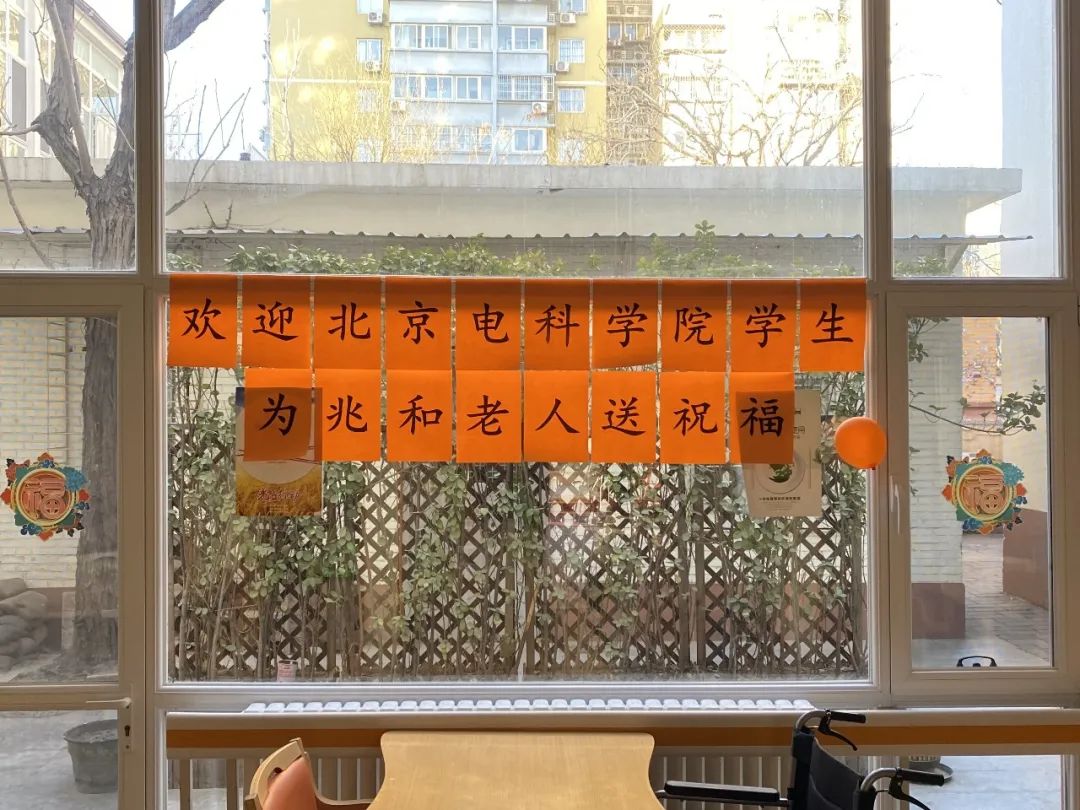 欢迎北京电科学院学生
为兆和老人送祝福
福
福